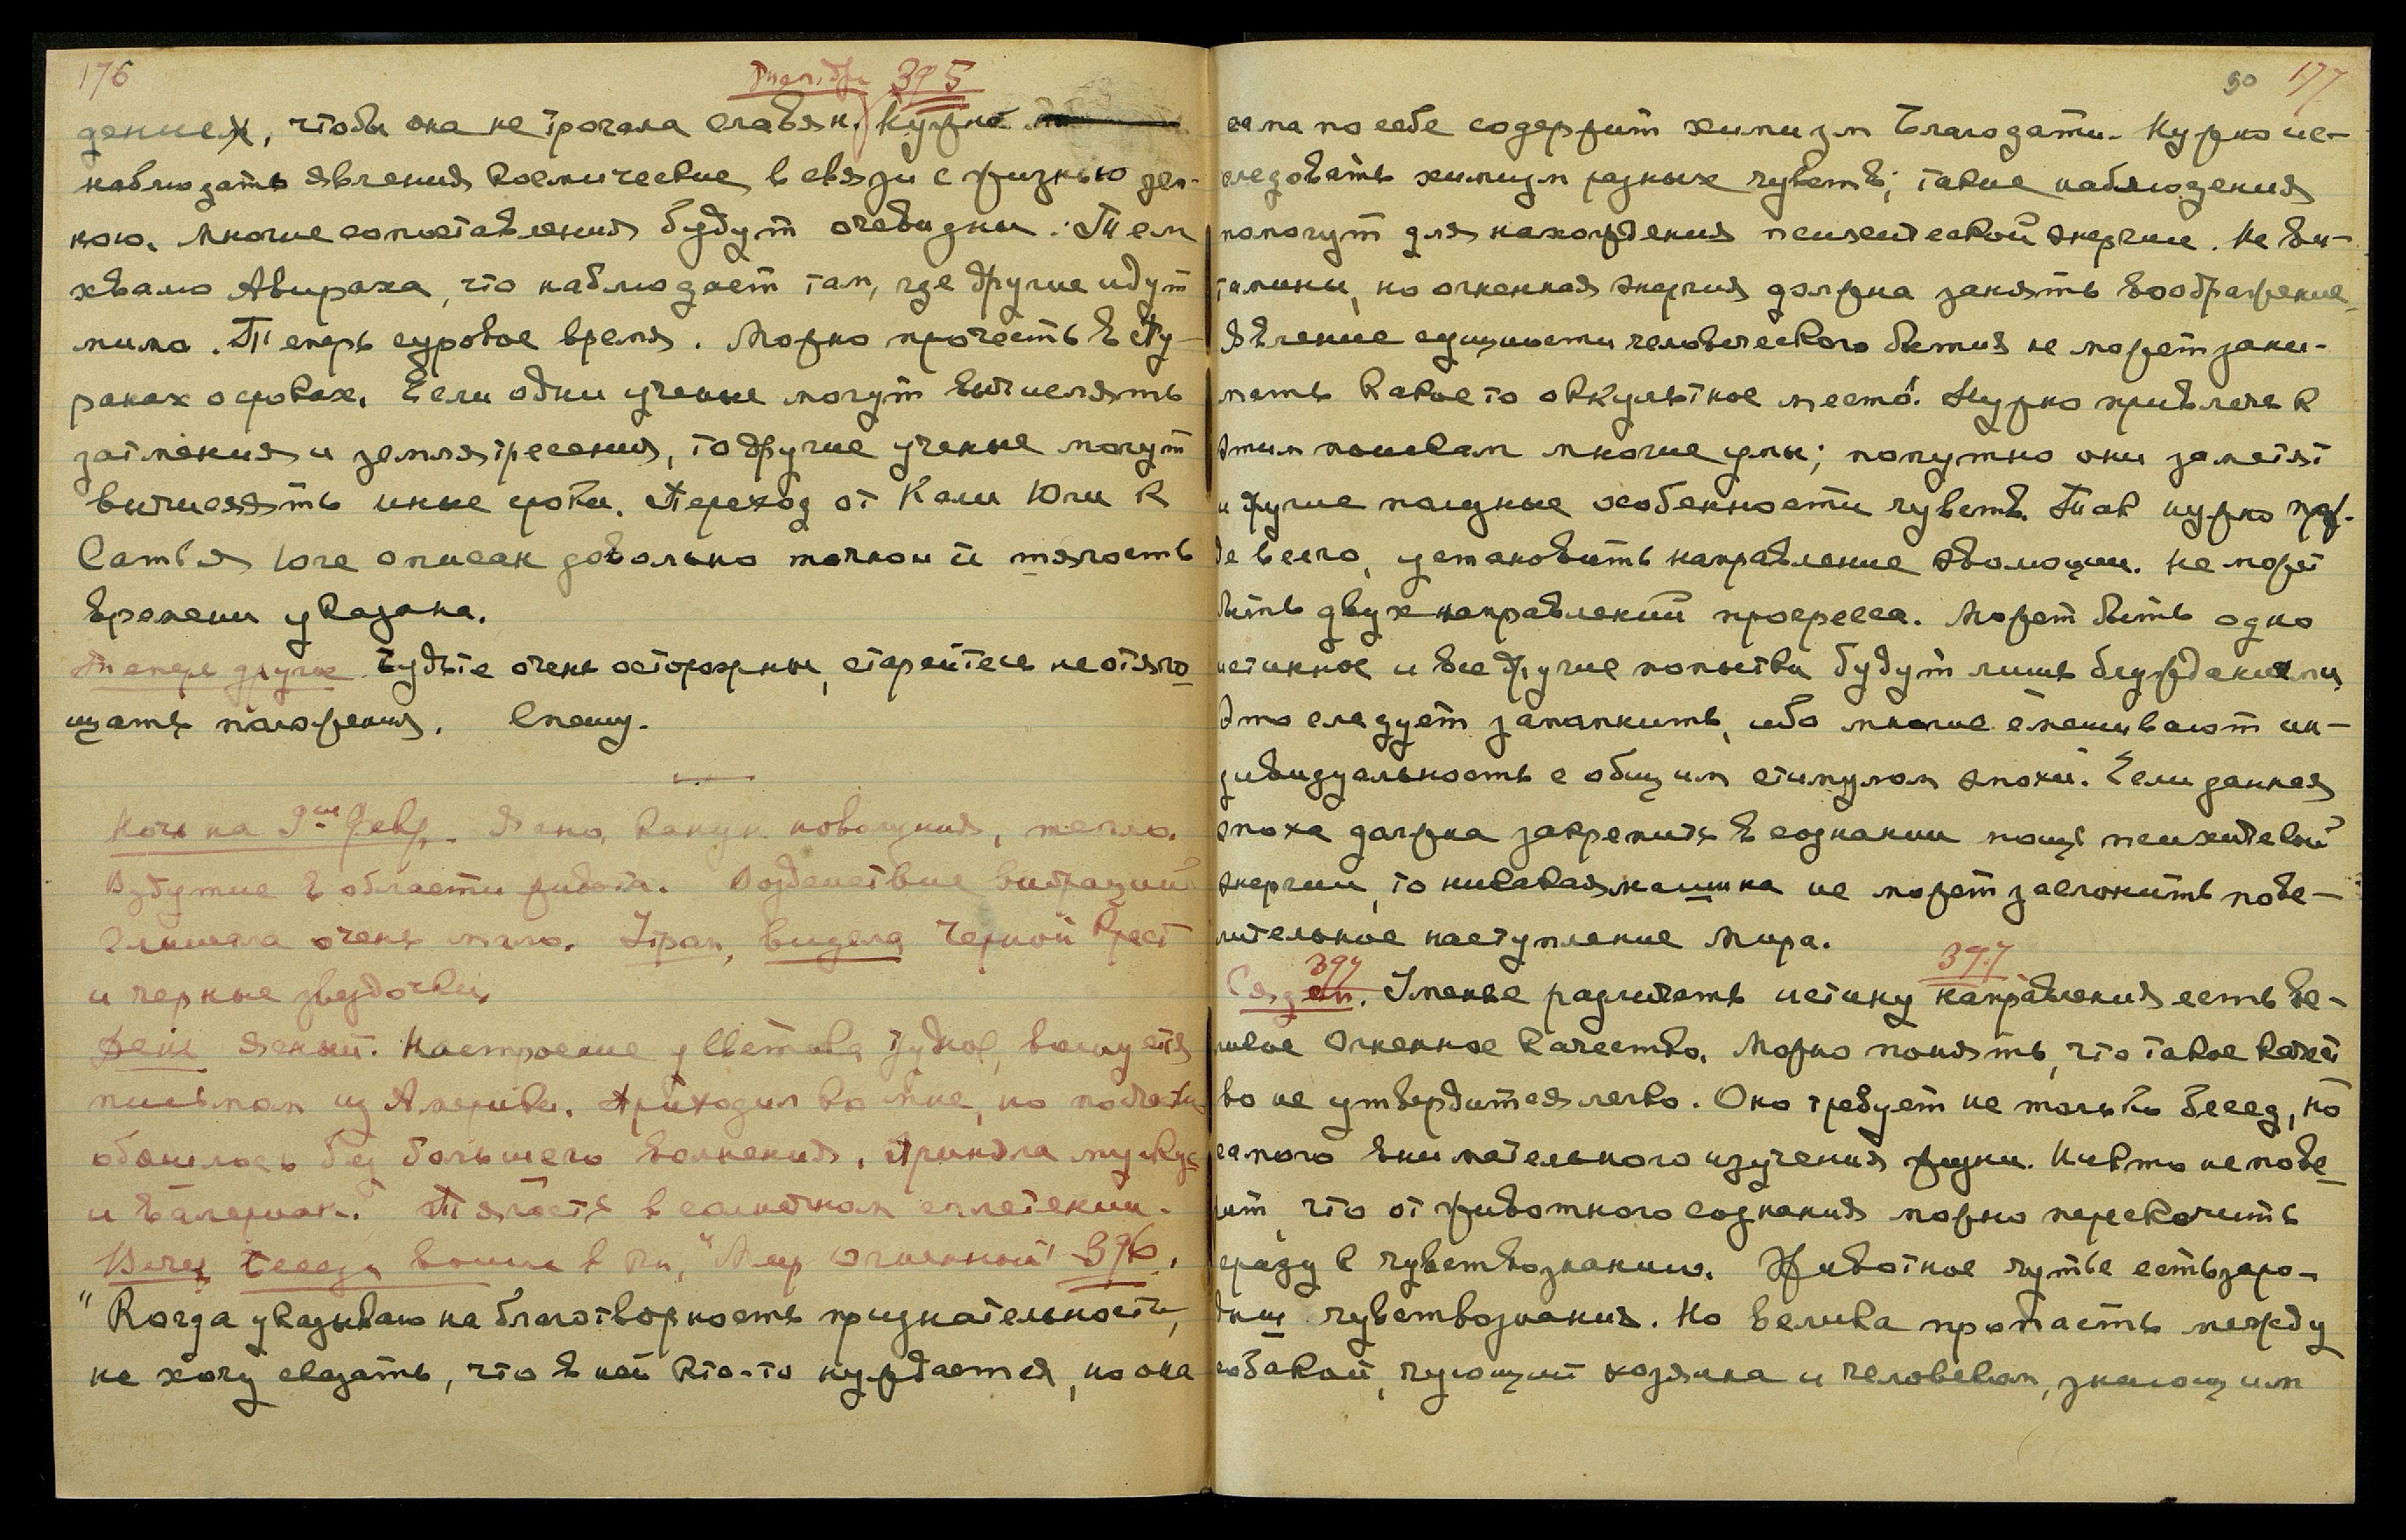 176
395
дениех, чтобы она не трогала славян. Нужно
наблюдать явления космические в связи с жизнью зем-
ною. Многие сопоставления будут очевидны. Тем
хвалю Авираха, что наблюдает там, где другие идут
мимо. Теперь суровое время. Можно прочесть в Пу-
ранах о сроках. Если одни ученые могут вычислять
затмения и землятресения, то другие ученые могут
вычислять иные сроки. Переход от Кали Юги к
Сатья Юге описан довольно точно и тягость
времени указана.
Теперь другое Будьте очень осторожны, старайтесь не отяго
щать положения. Спешу.
Ночь на 9ое Февр. Ясно, канун новолуния, тепло.
Вздутие в области живота. Воздействие вибраций
слышала очень мало. Утром, видела Черной Крест
и черные звездочки.
День ясный. Настроение у Светика чудное, волнуется
письмом из Америки. Приходил ко мне, но
обошлось без большего волнения. Приняла мускус
и валериан. Тягость в солнечном сплетении.
Вечер Беседа вошла в Кн. "Мир Огненный" 396.
"Когда указываю на благотворность признательности,
не хочу сказать, что в ней кто-то нуждается, но она
50 177
сама по себе содержит химизм Благодати. Нужно ис-
следовать химизм разных чувств; такие наблюдения
помогут для нахождения психической энергии. Не ви-
тамины, но огненная энергия должна занять воображение.
Явление сущности человеческого бытия не может зани-
мать какое то оккультное место. Нужно привлечь к
этим поискам многие умы; попутно они заметят
и другие полезные особенности чувств. Так нужно преж-
де всего, установить направление эволюции. Не может
быть двух направлений прогресса. Может быть одно
истинное и все другие попытки будут лишь блужданиями
Это следует запомнить, ибо многие смешивают ин-
дивидуальность с общим стимулом эпохи. Если данная
эпоха должна закрепить в сознании мощь психической
энергии, то никакая машина не может заслонить пове-
лительное наступление Мира.
397 397
Создан. Уменье различать истину направления есть ве-
ликое Огненное качество. Можно понять, что такое качест
во не утвердится легко. Оно требует не только бесед, но
самого внимательного изучения жизни. Никто не пове
рит, что от животного сознания можно перескочить
сразу к чувствознанию. Животное чутье есть заро-
дыш чувствознания. Но велика пропасть между
собакой, чующий хозяина и человеком, знающим